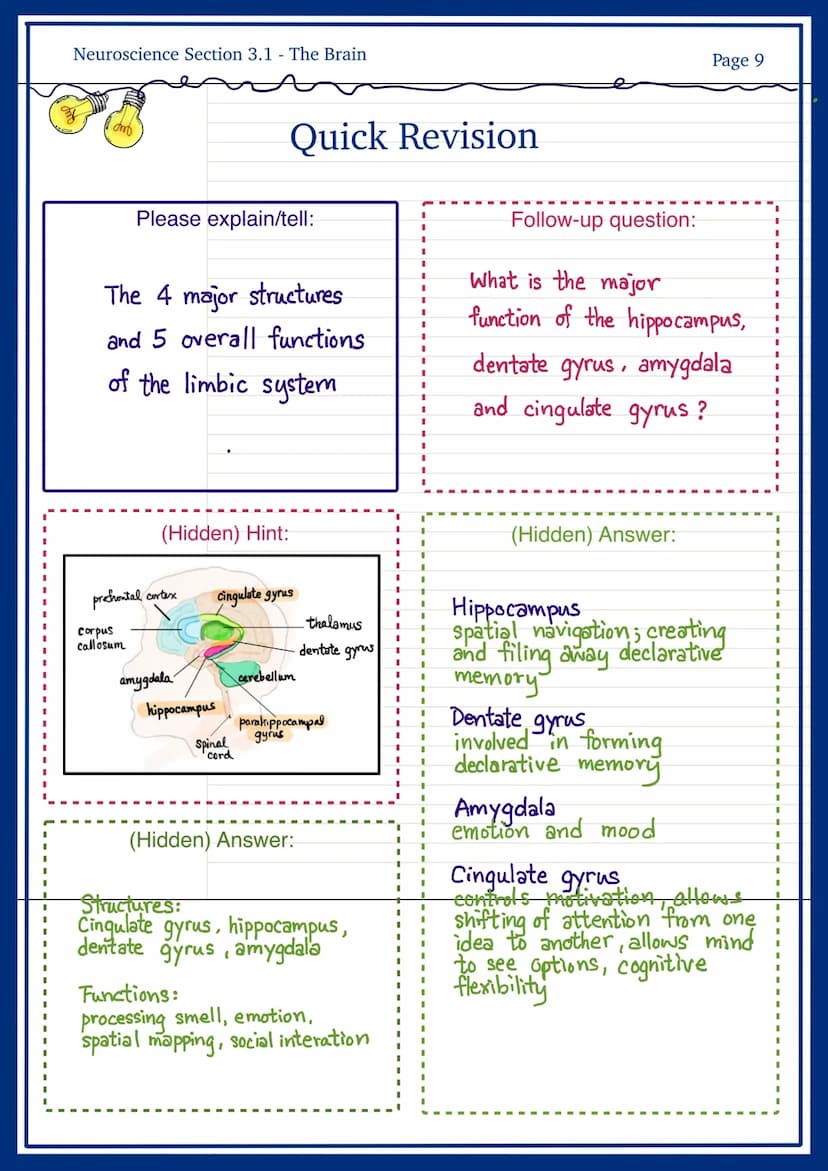 Neuroscience Section 3.1 - The Brain
Page 9
Quick Revision
Please explain/tell:
The 4 major structures
and 5 overall functions
of the limbic system
.
Follow-up question:
What is the major
function of the hippocampus,
dentate gyrus, amygdala
and cingulate gyrus?
(Hidden) Hint:
prefrontal cortex
cingulate gyrus
corpus
callosum
thalamus
dentate gyrus
amygdala
cerebellum
hippocampus
parahippocampal
gyrus
spinal
cord
(Hidden) Answer:
Structures:
Cingulate gyrus, hippocampus,
dentate gyrus, amygdala
Functions:
processing smell, emotion,
spatial mapping, social interation
(Hidden) Answer:
Hippocampus
spatial navigation; creating
and filing away declarative
memory
Dentate gyrus
involved in forming
declarative memory
Amygdala
emotion and mood
Cingulate gyrus
controls motivation, allows
shifting of attention from one
idea to another, allows mind
to see options, cognitive
flexibility